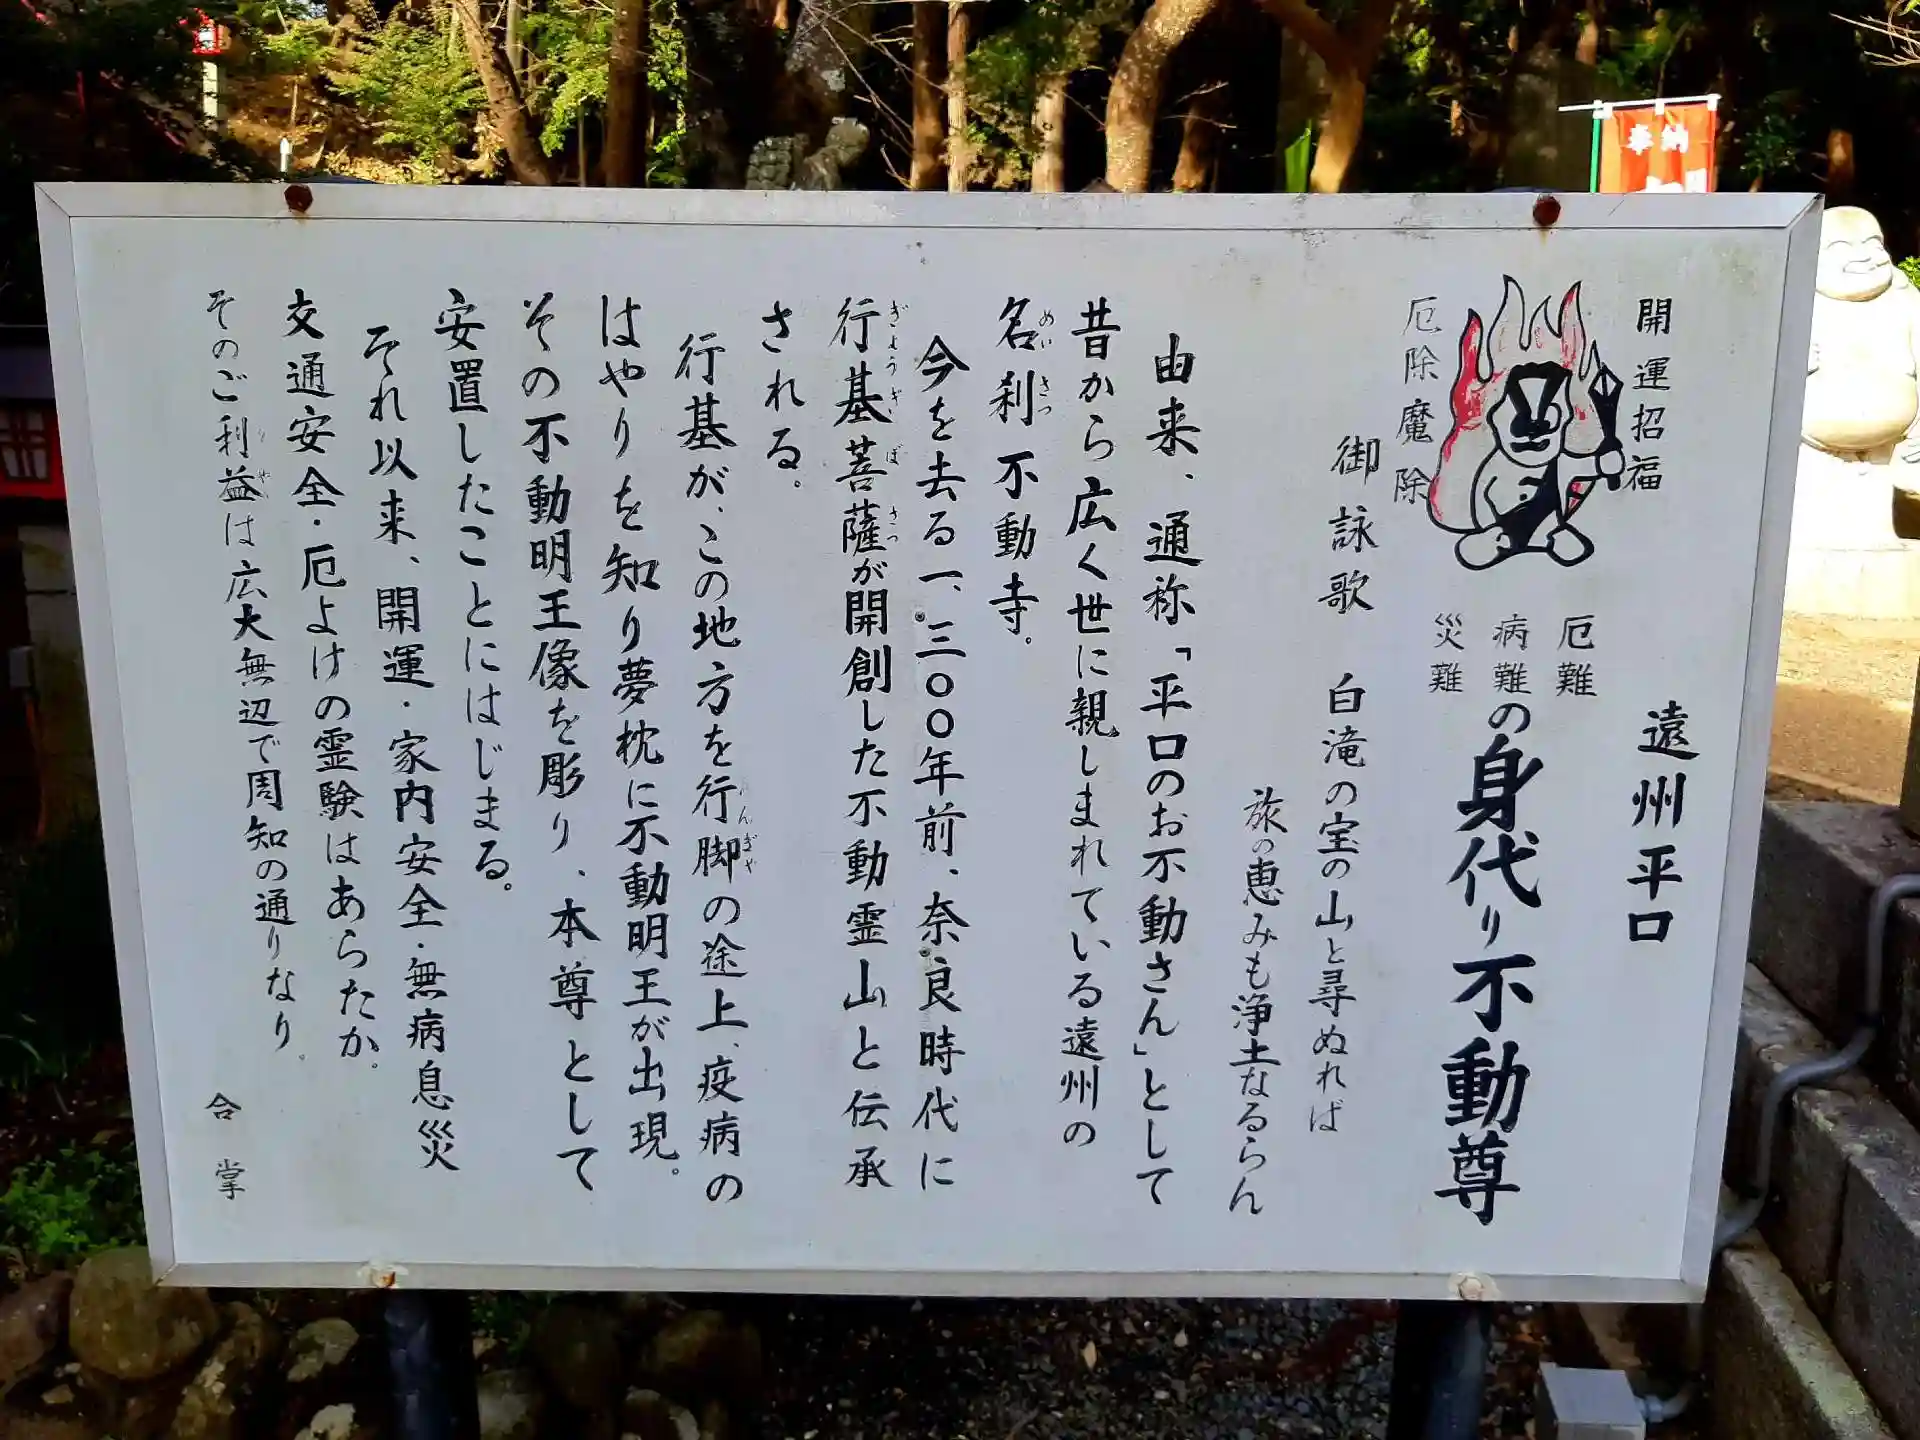 奉納
開運招福
厄除魔除
遠州平口
厄難
病難
災難
の身代り不動尊
御詠歌 白滝の宝の山と尋ぬれば
旅の恵みも浄土なるらん
由来、通称「平口のお不動さん」として
昔から広く世に親しまれている遠州の
名刹不動寺。
めいさつ
今を去る一、三〇〇年前、奈良時代に
行基菩薩が開創した不動霊山と伝承
ぎょうぎぼさつ
される。
行基が、この地方を行脚の途上、疫病の
はやりを知り夢枕に不動明王が出現。
その不動明王像を彫り、本尊として
安置したことにはじまる。
それ以来、開運・家内安全・無病息災
交通安全・厄よけの霊験はあらたか。
そのご利益は広大無辺で周知の通りなり。
りやく
合掌